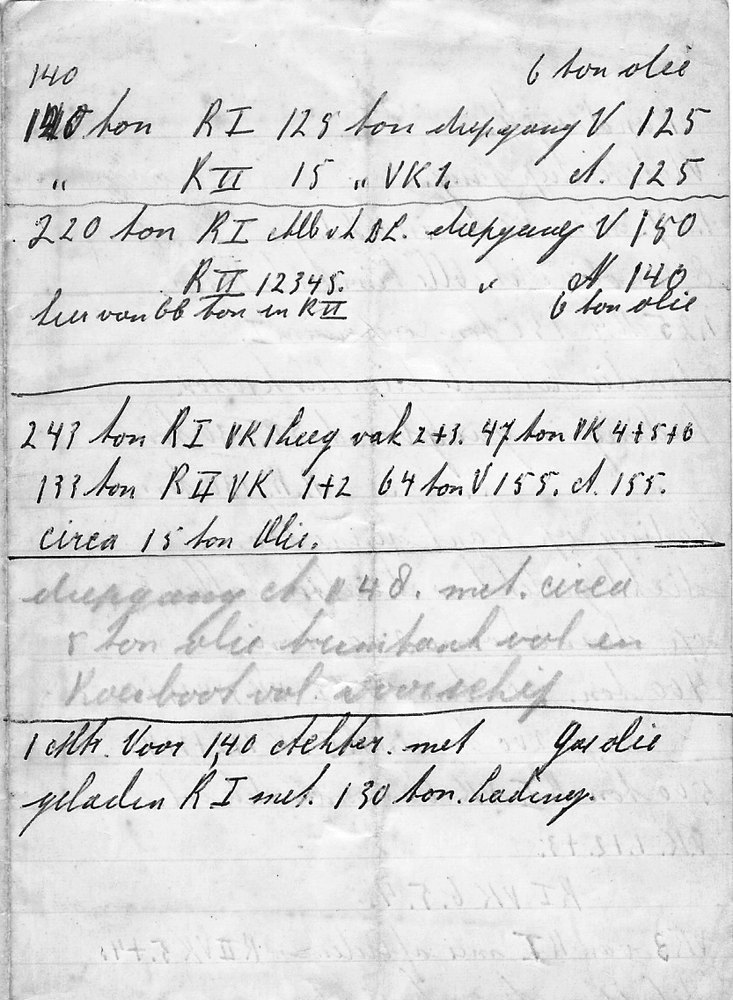 140 6 ton olie
140 ton R I 125 ton diepgang V 125
" R II 15 " VK 1. A. 125
220 ton R I diepgang V 150
R II 12345. " A 140
hier van 66 ton in R II 6 ton olie
243 ton R I VK 1 leeg vak 2+3. 47 ton VK 4+5+6
133 ton R II VK 1+2 64 ton V 155. A. 155.
circa 15 ton Olie.
diepgang A. 148. met. circa
5 ton olie vol en
vol. voorschip
1 Mtr. Voor 1,40 Achter. met Gasolie
geladen R I met. 130 ton. lading.